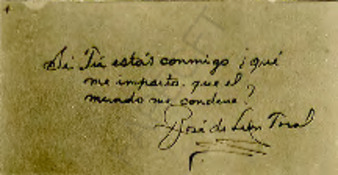 Si Tú estás conmigo ¿qué
me importa que el
mundo me condene?
José de León Toral